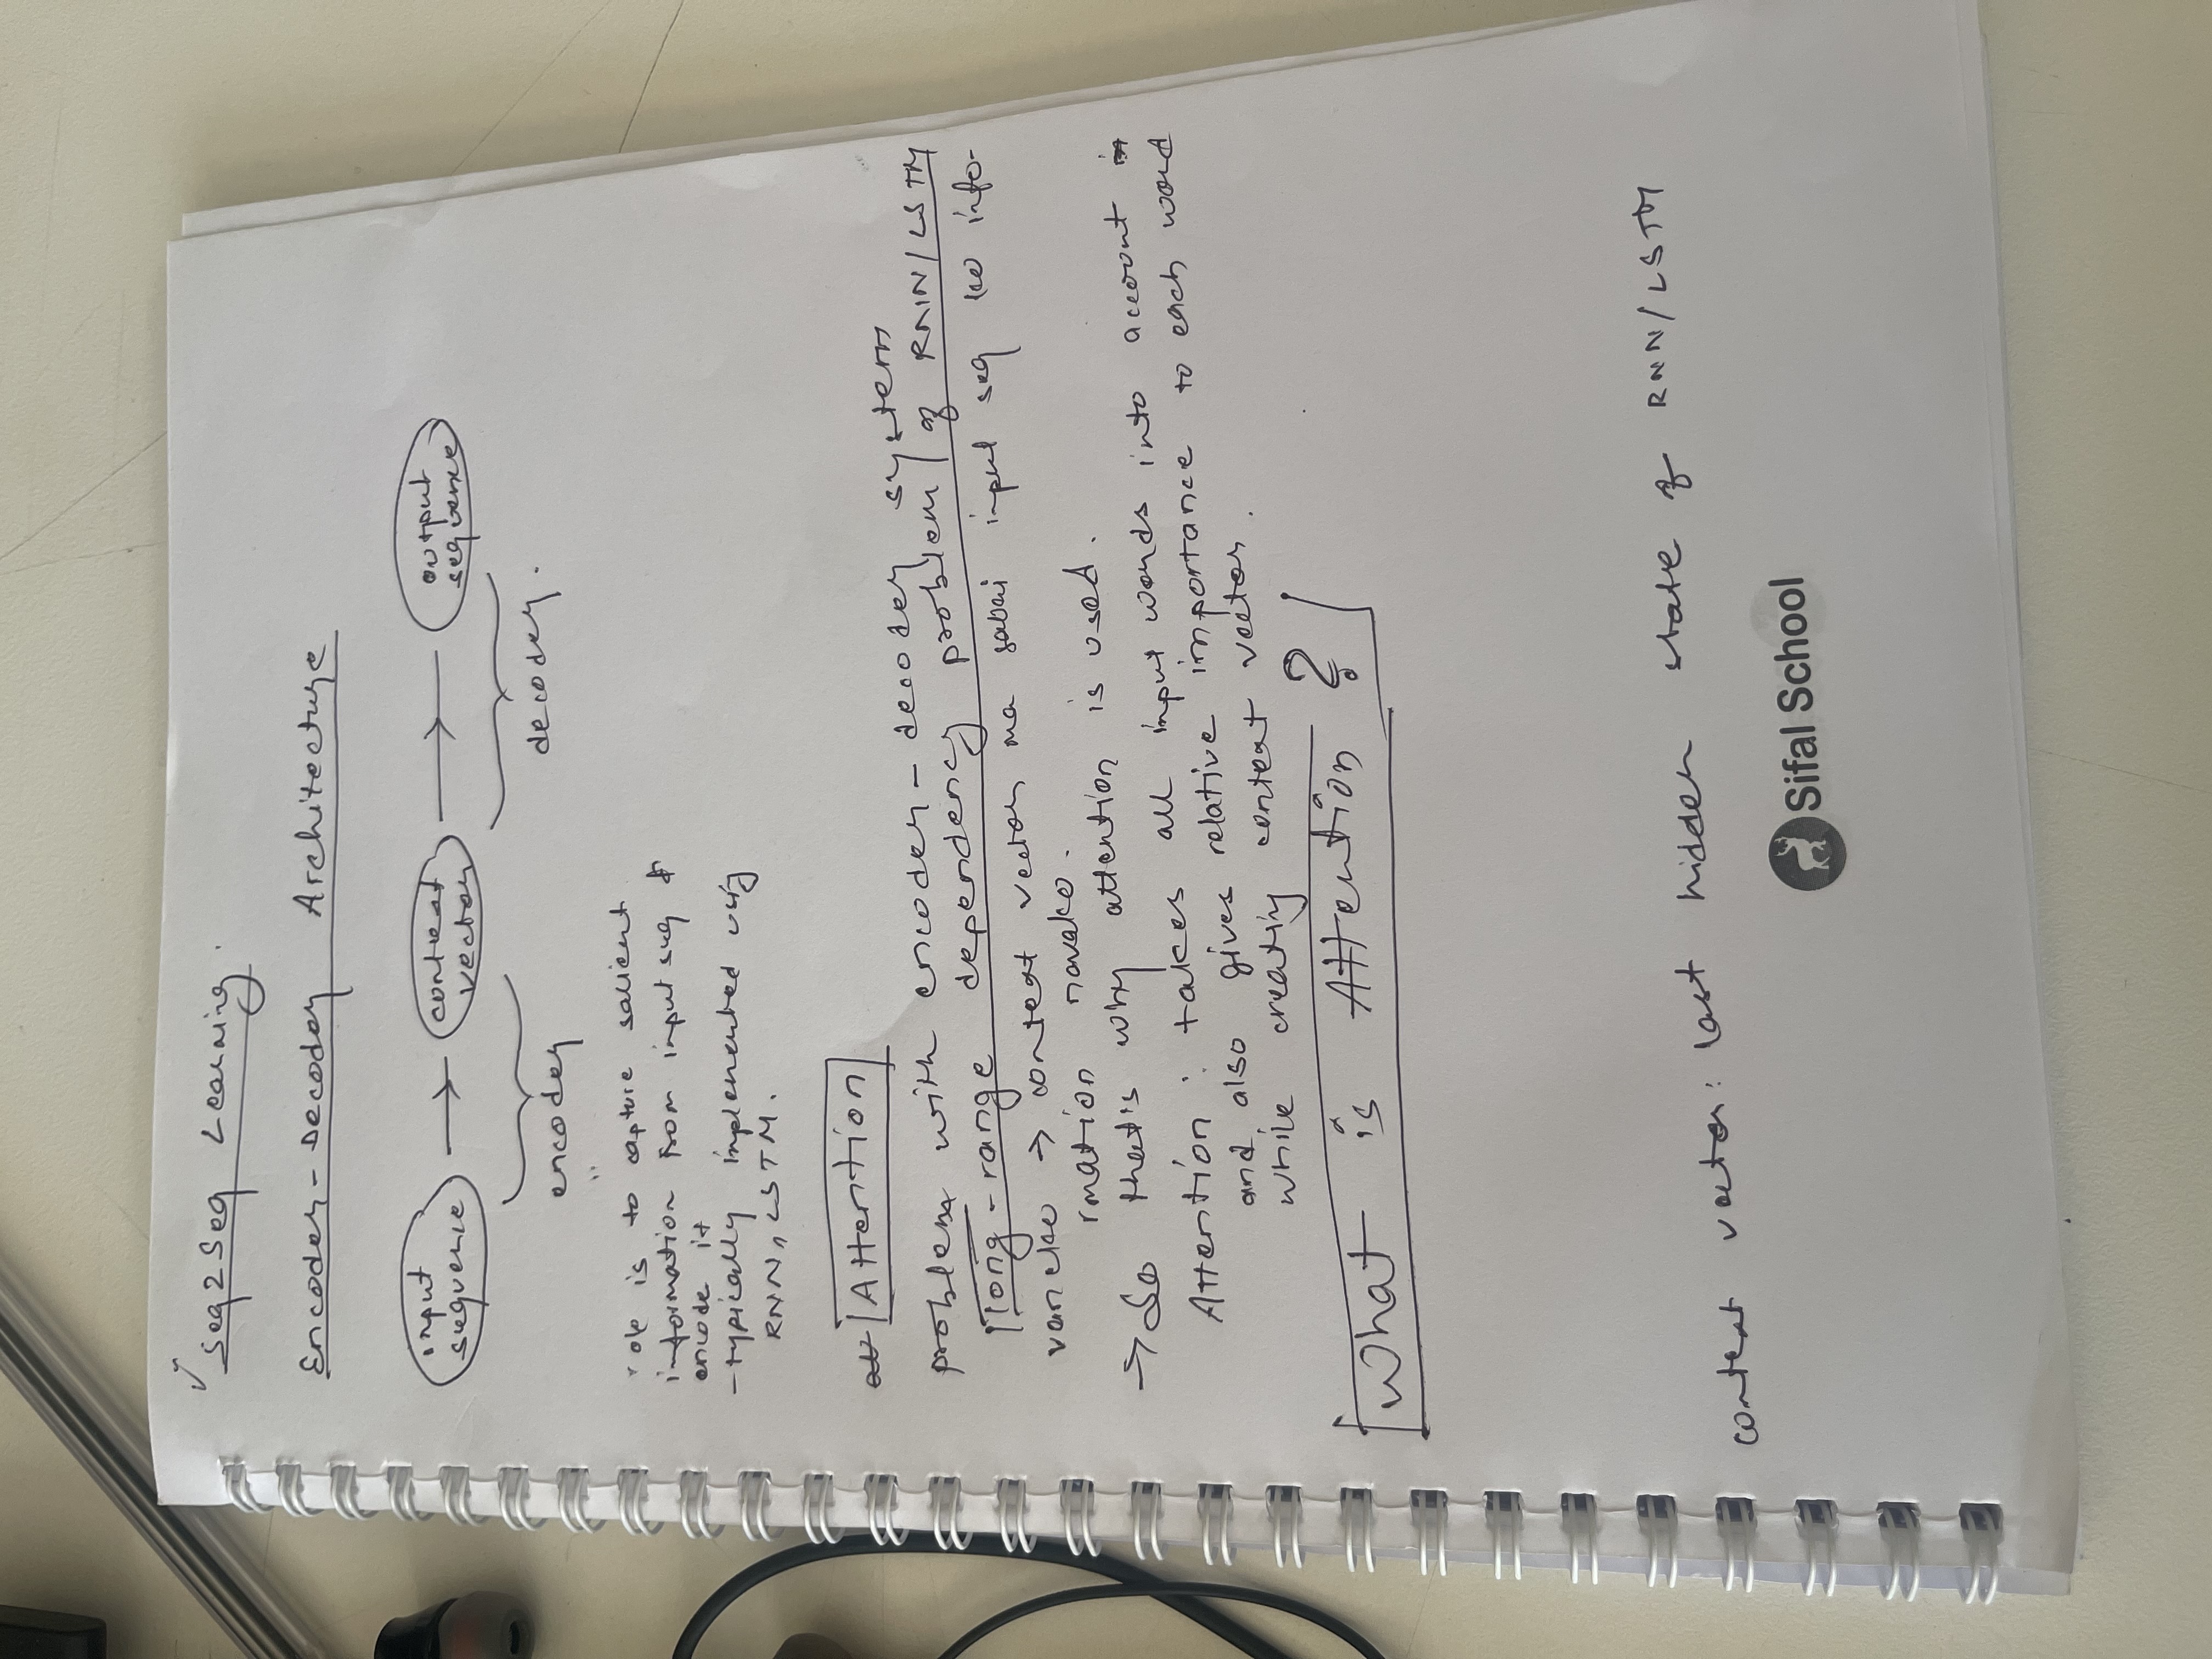 Seq2Seq Learning.
Encoder-Decoder Architecture
input
sequence
context
vector
output
sequence
encoder
decoder.
role is to capture salient
information from input seq &
encode it
- typically implemented using
RNN, LSTM.
Attention
problem with encoder-decoder system
long-range dependency problem of RNN/LSTM
vaneko → context vector ma sabai input seq ko info-
rmation navako.
→ So that's why attention is used.
Attention : takes all input words into account
and also gives relative importance to each word
while creating context vector.
What is Attention ?
context vector: last hidden state of RNN/LSTM
Sifal School